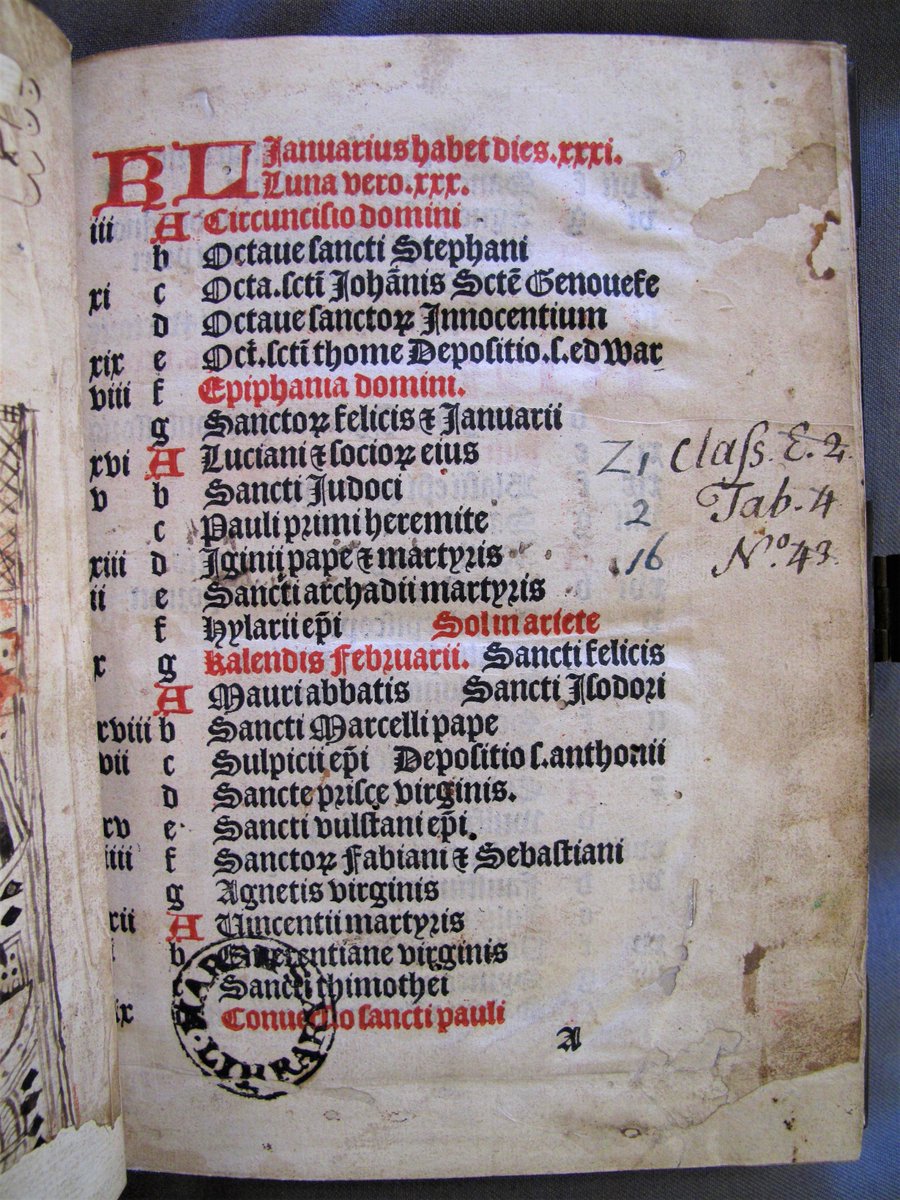 KL Januarius habet dies.xxxi.
Luna vero.xxx.
iii A Circuncisio domini
b Octaue sancti Stephani
xi c Octa.sctĩ Johãnis Sctẽ Genouefe
d Octaue sanctoꝝ Innocentium
xix e Oct̃.sctĩ thome Depositio.s.edwar
viii f Epiphania domini.
g Sanctoꝝ felicis ⁊ Januarii
xvi A Luciani ⁊ socioꝝ eius
v b Sancti Judoci
c Pauli primi heremite
xiii d Iginii pape ⁊ martyris
ii e Sancti archadii martyris
f Hylarii ep̃i Sol in ariete
x g Kalendis Februarii. Sancti felicis
A Mauri abbatis Sancti Isodori
xviii b Sancti Marcelli pape
vii c Sulpicii ep̃i Depositio s.anthonii
d Sancte prisce virginis.
xv e Sancti vulstani ep̃i.
iiii f Sanctoꝝ Fabiani ⁊ Sebastiani
g Agnetis virginis
xii A Uincentii martyris
b virginis
Sancti thimothei
ix sancti pauli
A
Z1 Claſs. E. 2.
2 Tab. 4
16 No. 43
LIBRARY